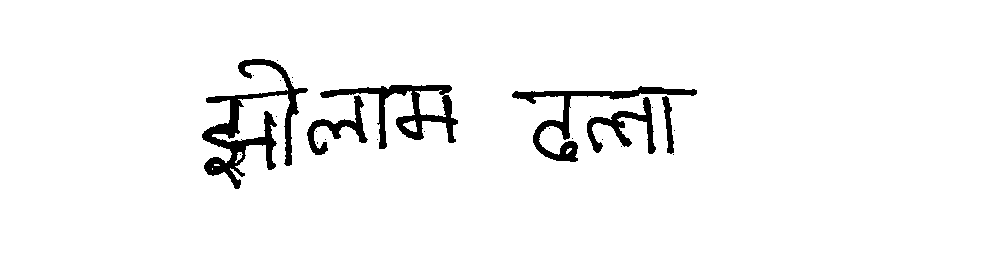 झोलाम दत्ता